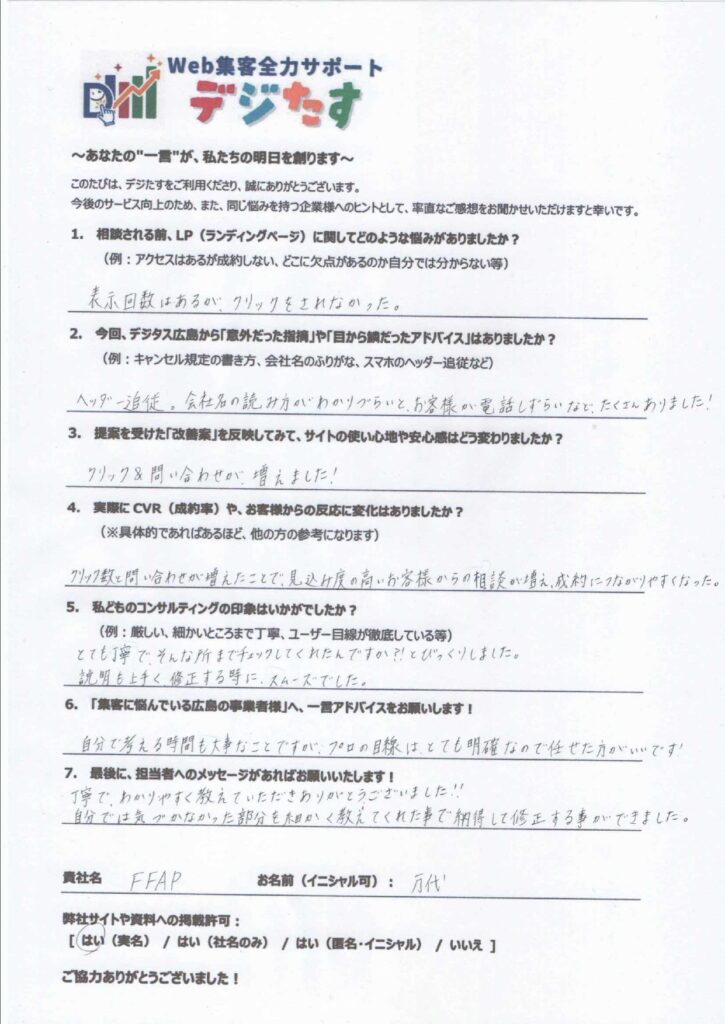 Web集客全力サポート
デジたす
～あなたの"一言"が、私たちの明日を創ります～
このたびは、デジたすをご利用くださり、誠にありがとうございます。
今後のサービス向上のため、また、同じ悩みを持つ企業様へのヒントとして、率直なご感想をお聞かせいただけますと幸いです。
1. 相談される前、LP（ランディングページ）に関してどのような悩みがありましたか？
（例：アクセスはあるが成約しない、どこに欠点があるのか自分では分からない等）
表示回数はあるが、クリックをされなかった。
2. 今回、デジタス広島から「意外だった指摘」や「目から鱗だったアドバイス」はありましたか？
（例：キャンセル規定の書き方、会社名のふりがな、スマホのヘッダー追従など）
ヘッダー追従。会社名の読み方がわかりづらいと、お客様が電話しずらいなど、たくさんありました！
3. 提案を受けた「改善案」を反映してみて、サイトの使い心地や安心感はどう変わりましたか？
クリック＆問い合わせが、増えました！
4. 実際にCVR（成約率）や、お客様からの反応に変化はありましたか？
（※具体的であればあるほど、他の方の参考になります）
クリック数と問い合わせが増えたことで、見込み度の高いお客様からの相談が増え、成約につながりやすくなった。
5. 私どものコンサルティングの印象はいかがでしたか？
（例：厳しい、細かいところまで丁寧、ユーザー目線が徹底している等）
とても丁寧で、そんな所までチェックしてくれたんですか？！とびっくりしました。
説明も上手く、修正する時に、スムーズでした。
6. 「集客に悩んでいる広島の事業者様」へ、一言アドバイスをお願いします！
自分で考える時間も大事なことですが、プロの目線は、とても明確なので任せた方がいいです！
7. 最後に、担当者へのメッセージがあればお願いいたします！
丁寧で、わかりやすく教えていただきありがとうございました！！
自分では気づかなかった部分を細かく教えてくれた事で納得して修正する事ができました。
貴社名 FFAP お名前（イニシャル可）： 万代
弊社サイトや資料への掲載許可：
[ はい（実名） / はい（社名のみ） / はい（匿名・イニシャル） / いいえ ]
ご協力ありがとうございました！